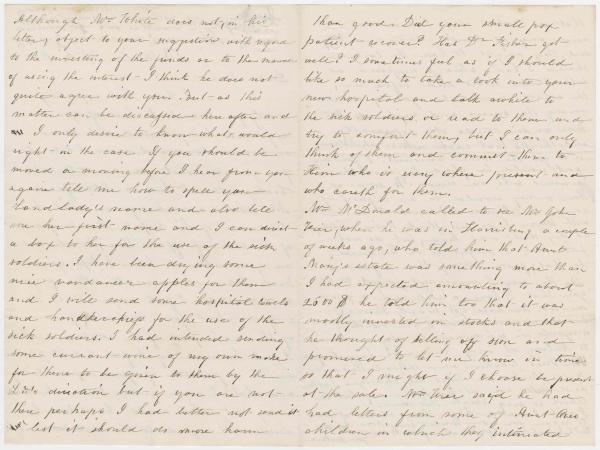 Although Mr White does not, in his
letter, object to your suggestion with regard
to the investing of the funds or to the manner
of using the interest I think he does not
quite agree with you. But as this
matter can be discussed here after and
I only desire to know what would
right in the case. If you should be
moved a morning before I hear from you
again tell me how to spell your
Landlady's name and also tell
me her first name and I can direct
a box to her for the use of the sick
soldiers. I have been drying some
nice apples for them
and I will send some hospital
and handkerchiefs for the use of the
sick soldiers. I had intended sending
some currant wine of my own make
for them to be given to them by the
direction but if you are not
there perhaps I had better not send it
lest it should do more harm
than good. Did your small pox
patient recover? Has Dr Fisher got
well? I sometimes feel as if I should
like so much to take a look into your
new hospital and talk awhile to
the sick soldiers or read to them and
try to comfort them, but I can only
think of them and commit them to
Him who is every where present and
who careth for them.
Mr McDonald called to see Mr John
when he was in Harrisburg a couple
of weeks ago, who told him that Aunt
Mary's estate was something more than
I had expected amounting to about
2600 $ he told him too that it was
mostly invested in stocks and that
he thought of selling off soon and
promised to let me know in time
so that I might if I choose be present
at the sale. Mr said he had
had letters from some of Aunt
children in which they intimated